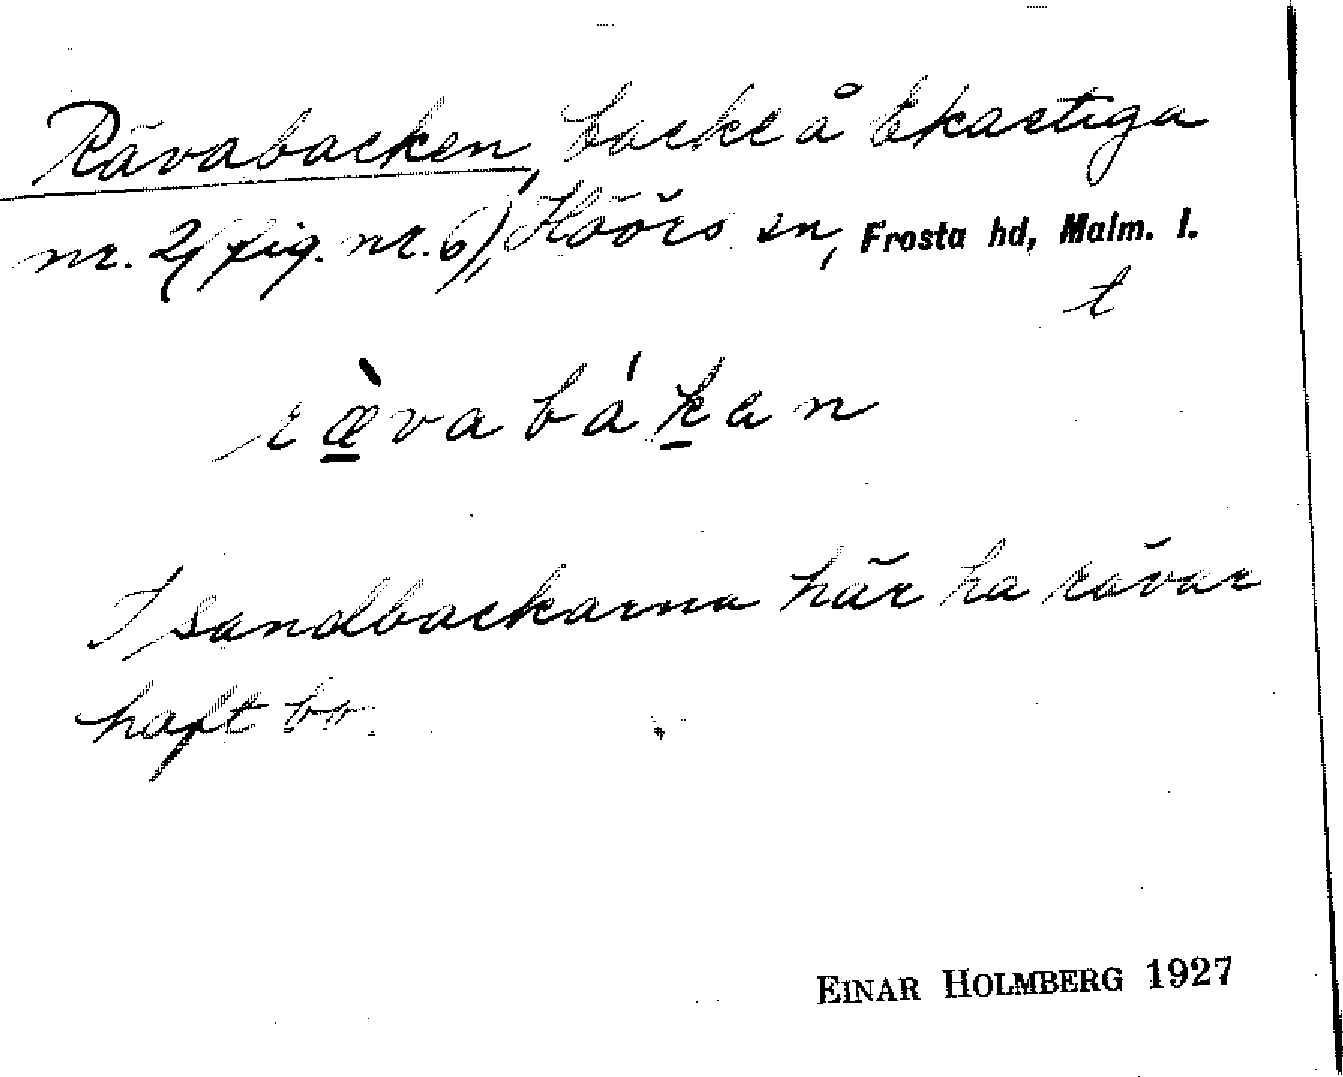 Rävabacken, backe å Ekastiga
nr. 2 (fig. nr. 6), Höörs sn, Frosta hd, Malm. l.
t
ræ̀vabákan
I sandbackarna här ha rävar
haft bo.
EINAR HOLMBERG 1927